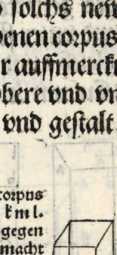 solchs new
benen corpus
r auffmerck
obere vnd vn
vnd gestalt
corpus
k m l.
gegen
macht